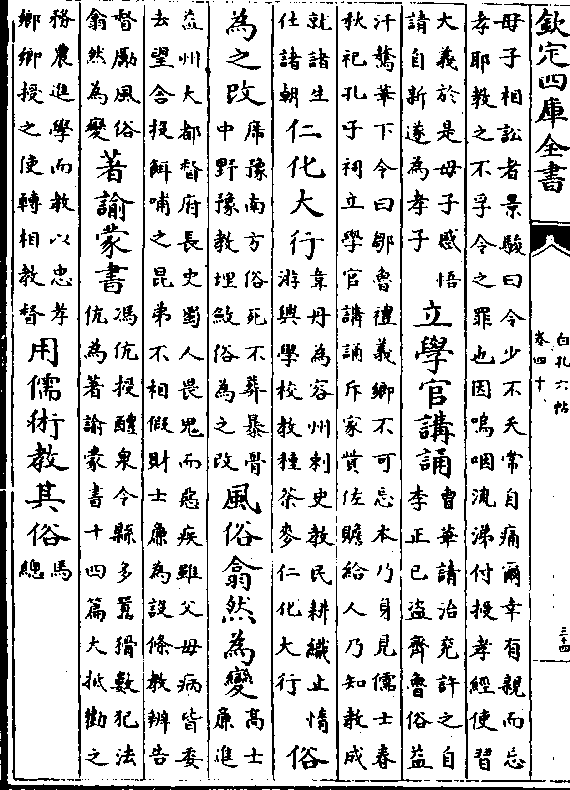 欽定四庫全書
白孔六帖
卷四十
三十四
母子相訟者景駿曰令少不天常自痛爾幸有親而忘
孝耶教之不孚令之罪也因嗚咽流涕付授孝經使習
大義於是母子感悟
請自新遂為孝子
立學官講誦
曹華請治兗許之自
李正已盜齊魯俗益
汙驁華下令曰鄒魯禮義鄉不可忘本乃身見儒士春
秋祀孔子祠立學官講誦斥家貲佐贍給人乃知教成
就諸生
仕諸朝
仁化大行
韋丹為容州刺史教民耕織止惰
游興學校教種茶麥仁化大行
俗
為之改
席豫南方俗死不葬暴骨
中野豫教埋斂俗為之改
風俗翕然為變
髙士
廉進
益州大都督府長史蜀人畏鬼而惡疾雖父母病皆委
去望舍投餌哺之昆弟不相假財士廉為設條教辨告
督勵風俗
翕然為變
著諭蒙書
馮伉授醴泉令縣多嚚猾數犯法
伉為著諭蒙書十四篇大抵勸之
務農進學而教以忠孝
鄉鄉授之使轉相教督
用儒術教其俗
馬
總